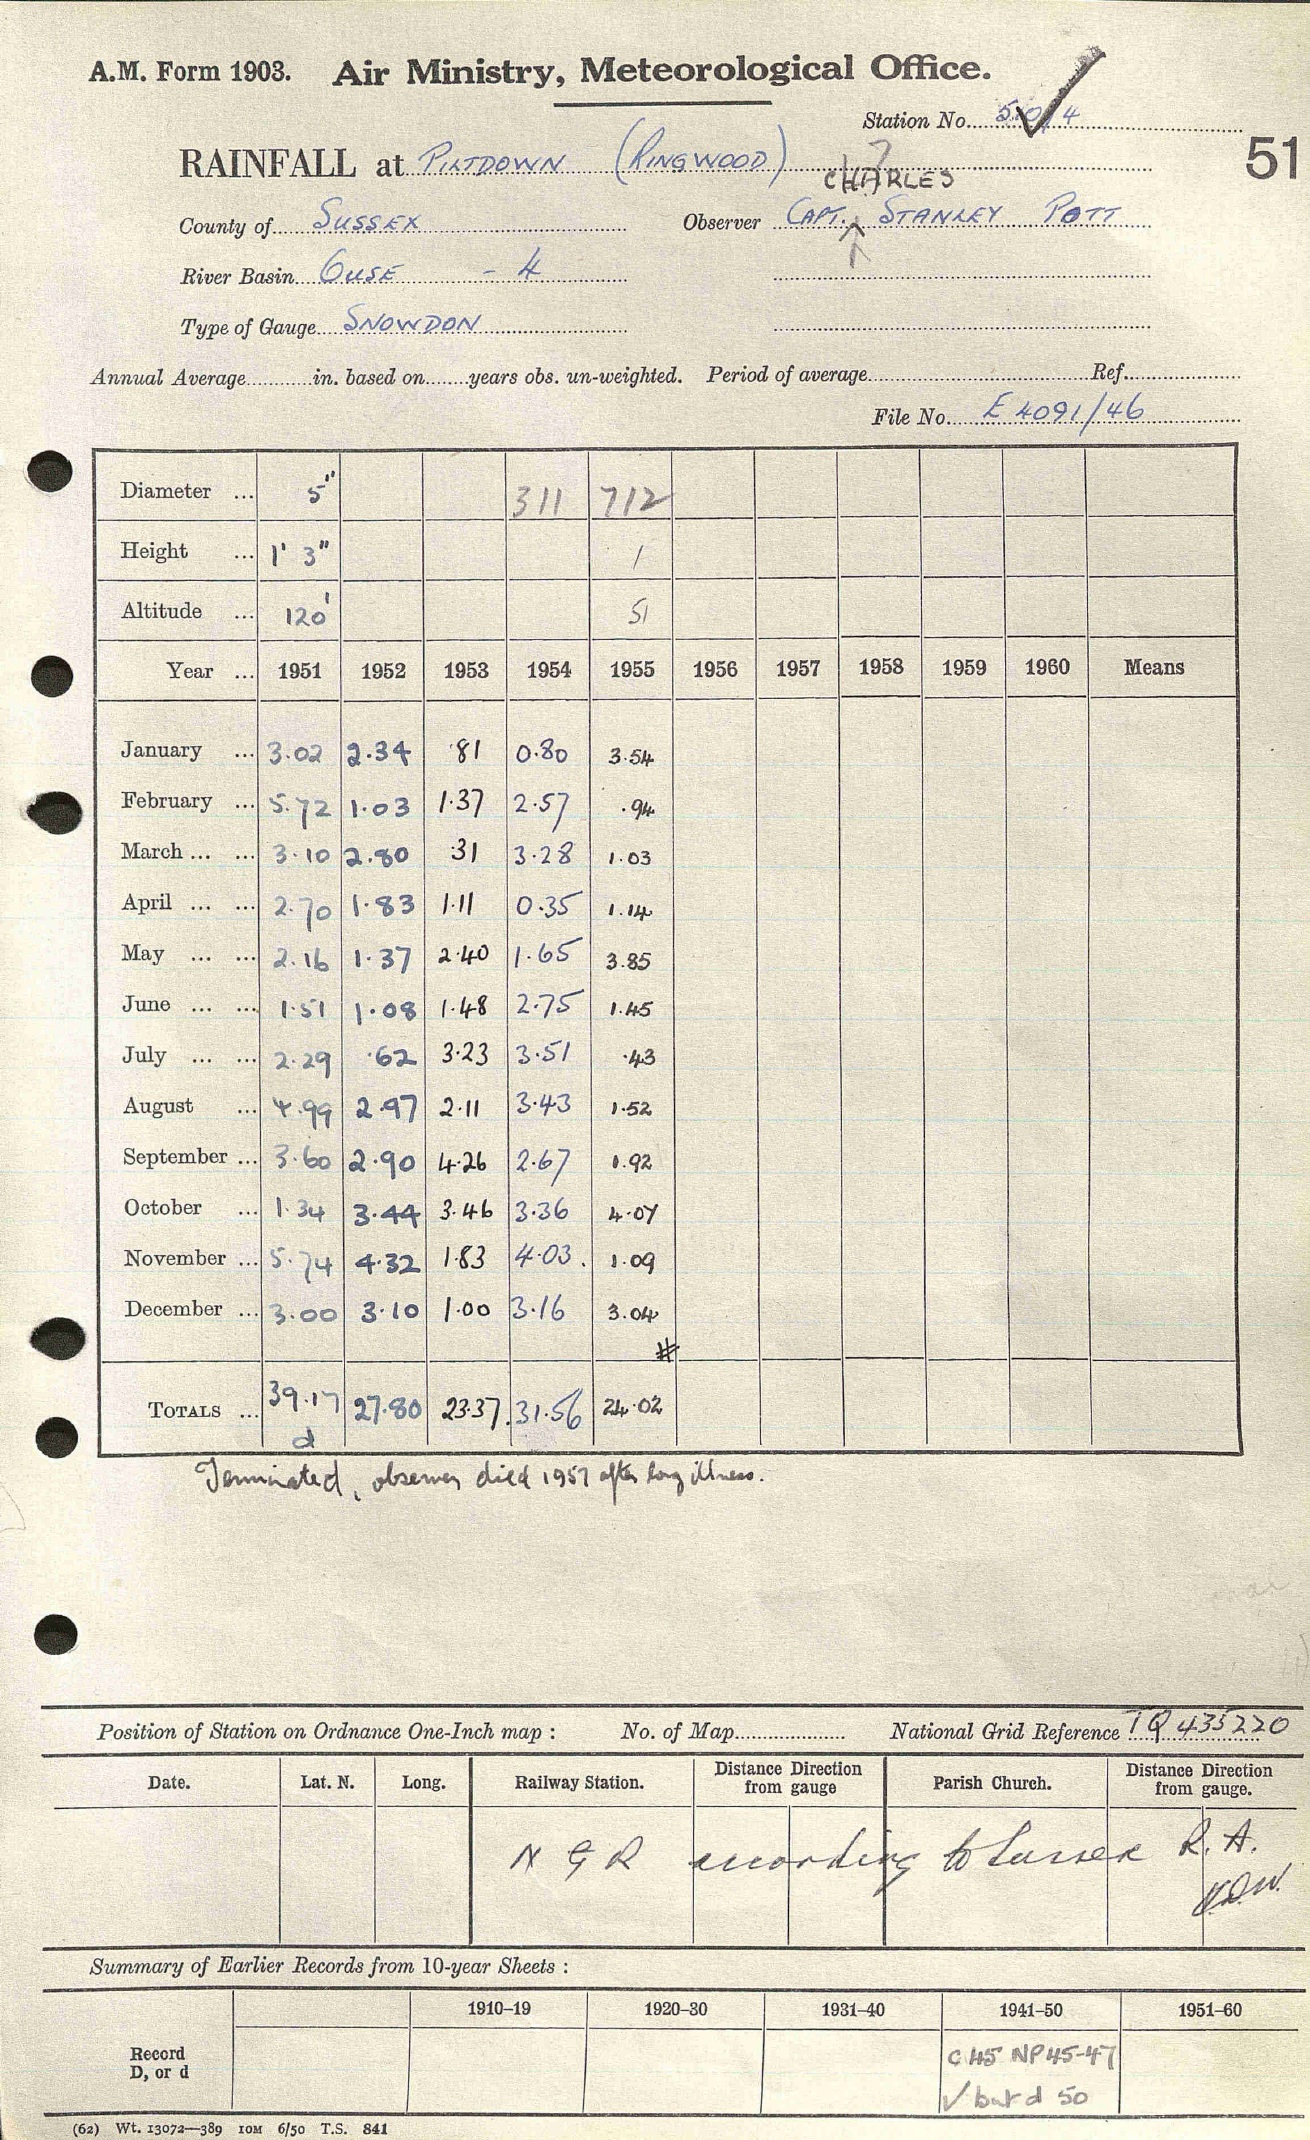 A.M. Form 1903. Air Ministry, Meteorological Office.
Station No. 5 0/4
51
RAINFALL at PILTDOWN (RINGWOOD)
CHARLES
County of SUSSEX Observer CAPT. STANLEY POTT
River Basin OUSE - 4
Type of Gauge SNOWDON
Annual Average in. based on years obs. un-weighted. Period of average Ref.
File No. E 4091/46
Diameter ... 5" 311 712
Height ... 1' 3" 1
Altitude ... 120' 51
Year ... 1951 1952 1953 1954 1955 1956 1957 1958 1959 1960 Means
January ... 3.02 2.34 .81 0.80 3.54
February ... 5.72 1.03 1.37 2.57 .94
March ... ... 3.10 2.80 .31 3.28 1.03
April ... ... 2.70 1.83 1.11 0.35 1.14
May ... ... 2.16 1.37 2.40 1.65 3.85
June ... ... 1.51 1.08 1.48 2.75 1.45
July ... ... 2.29 .62 3.23 3.51 .43
August ... 4.99 2.97 2.11 3.43 1.52
September ... 3.60 2.90 4.26 2.67 1.92
October ... 1.34 3.44 3.46 3.36 4.07
November ... 5.74 4.32 1.83 4.03. 1.09
December ... 3.00 3.10 1.00 3.16 3.04
#
TOTALS ... 39.17 27.80 23.37. 31.56 24.02
d
Terminated, observer died 1957 after long illness.
Position of Station on Ordnance One-Inch map : No. of Map National Grid Reference TQ 435220
Date. Lat. N. Long. Railway Station. Distance Direction from gauge Parish Church. Distance Direction from gauge.
N G R according to Sussex R. A.
Summary of Earlier Records from 10-year Sheets :
1910–19 1920–30 1931–40 1941–50 1951–60
Record D, or d C45 NP45-47
✓ but d 50
(62) Wt. 13072—389 10M 6/50 T.S. 841